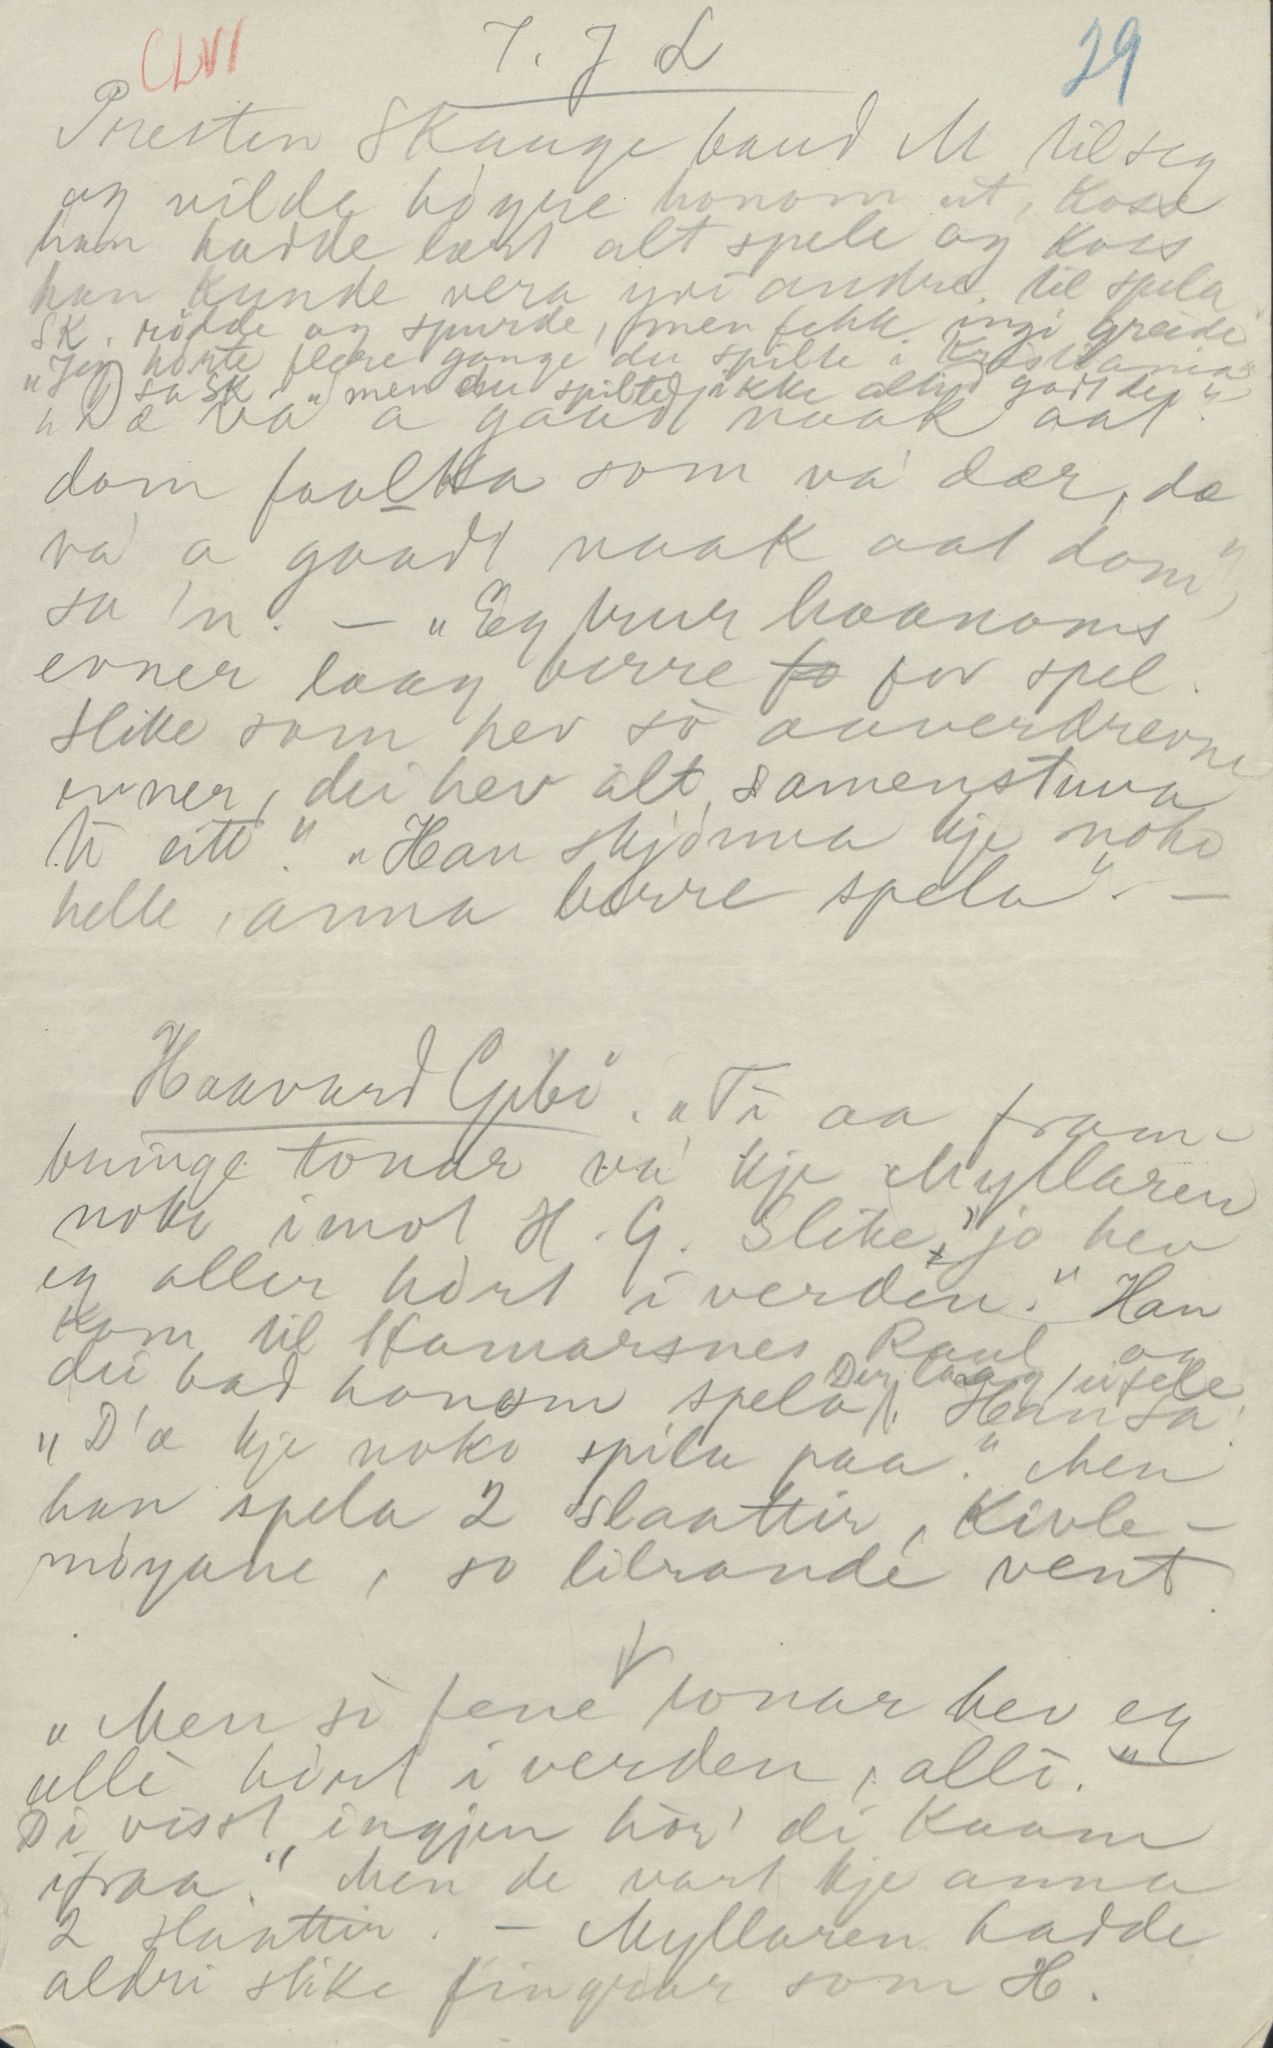 CLVI
T. J L
29
Presten Skauge baud M til seg
og vilde höyre honom ut, koss
han hadde lært alt spele og koss
han kunde vera yvi andre til spela
SK. rödde og spurde, men fekk ingi greide
"Jeg hörte flere gange du spilte i Kristiania"
sa SK. "men du spilte ikke altid godt der"
"Dæ va' a gaadt naak aat
dom faalka som va' dær, dæ
va' a gaadt naak aat dom"
sa 'n. – "Eg trur haanoms
evner laag berre for spel.
Slike som hev sö aaverdrevne
evner, dei hev alt samenstuva
ti eitt." "Han skjönna kje noko
helle, anna berre spela". –
Haavard Gibö. "Ti aa fram-
bringe tonar va' kje Myllaren
noko imot H. G. Slike, jo hev
eg aller hört i verden." Han
kom til Hamarsnes Raul og
dei bad honom spela. Der laag ei fele
Han sa:
"D'æ kje noko spila paa." Men
han spela 2 slaattir, Kivle-
möyane, so titrande vent
"Men sö fene tonar hev eg
alli hört i verden, alli."
Di visst ingjen hör' di kaam
ifraa." Men de vart kje anna
2 slaattir. – Myllaren hadde
aldri slike fingrar som H.